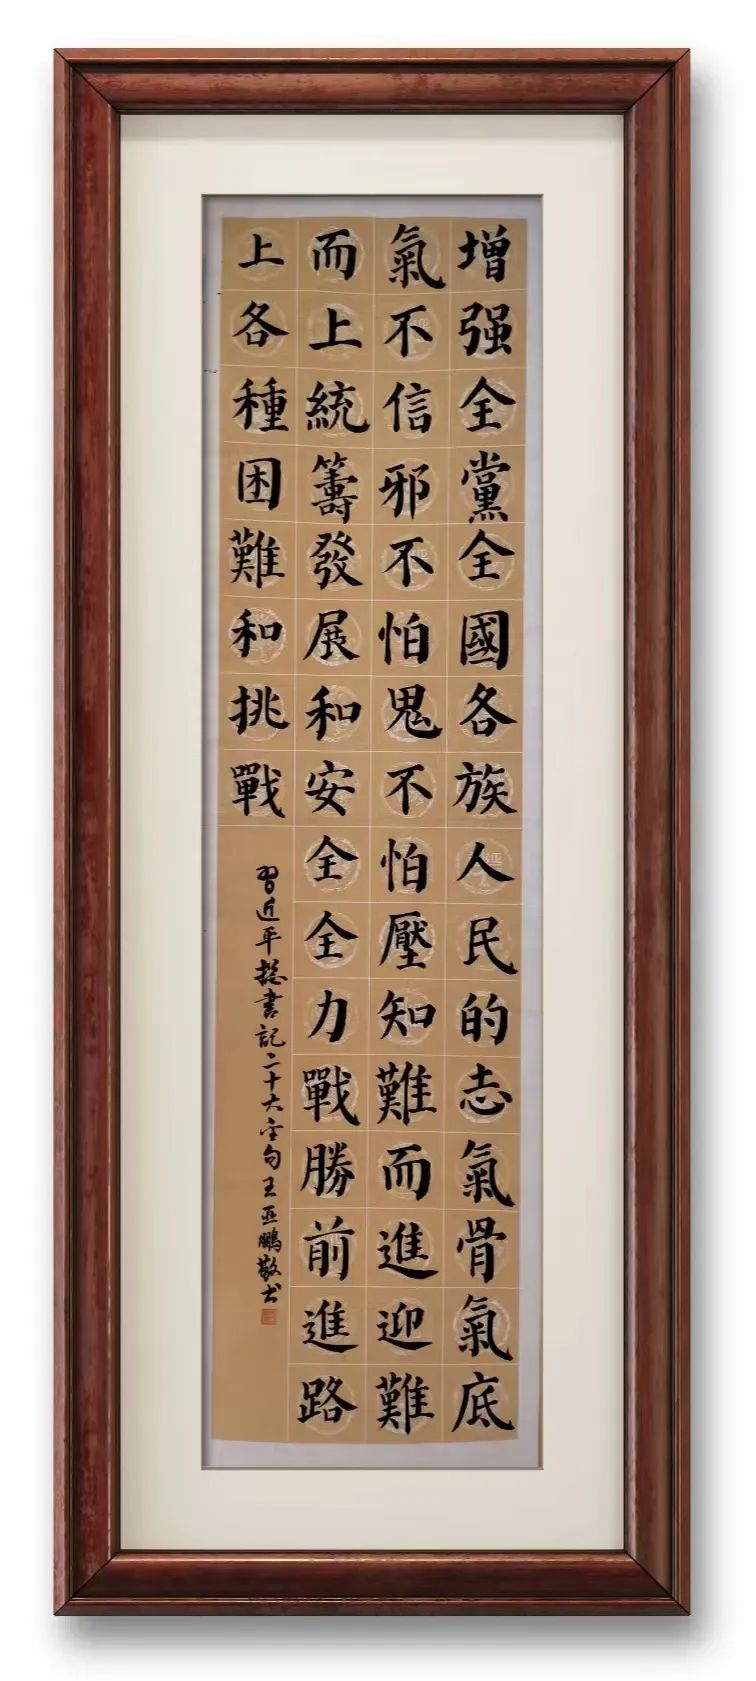 增强全黨全國各族人民的志氣骨氣底
氣不信邪不怕鬼不怕壓知難而進迎難
而上統籌發展和安全全力戰勝前進路
上各種困難和挑戰
習近平總書記二十大金句王亞鵬敬书